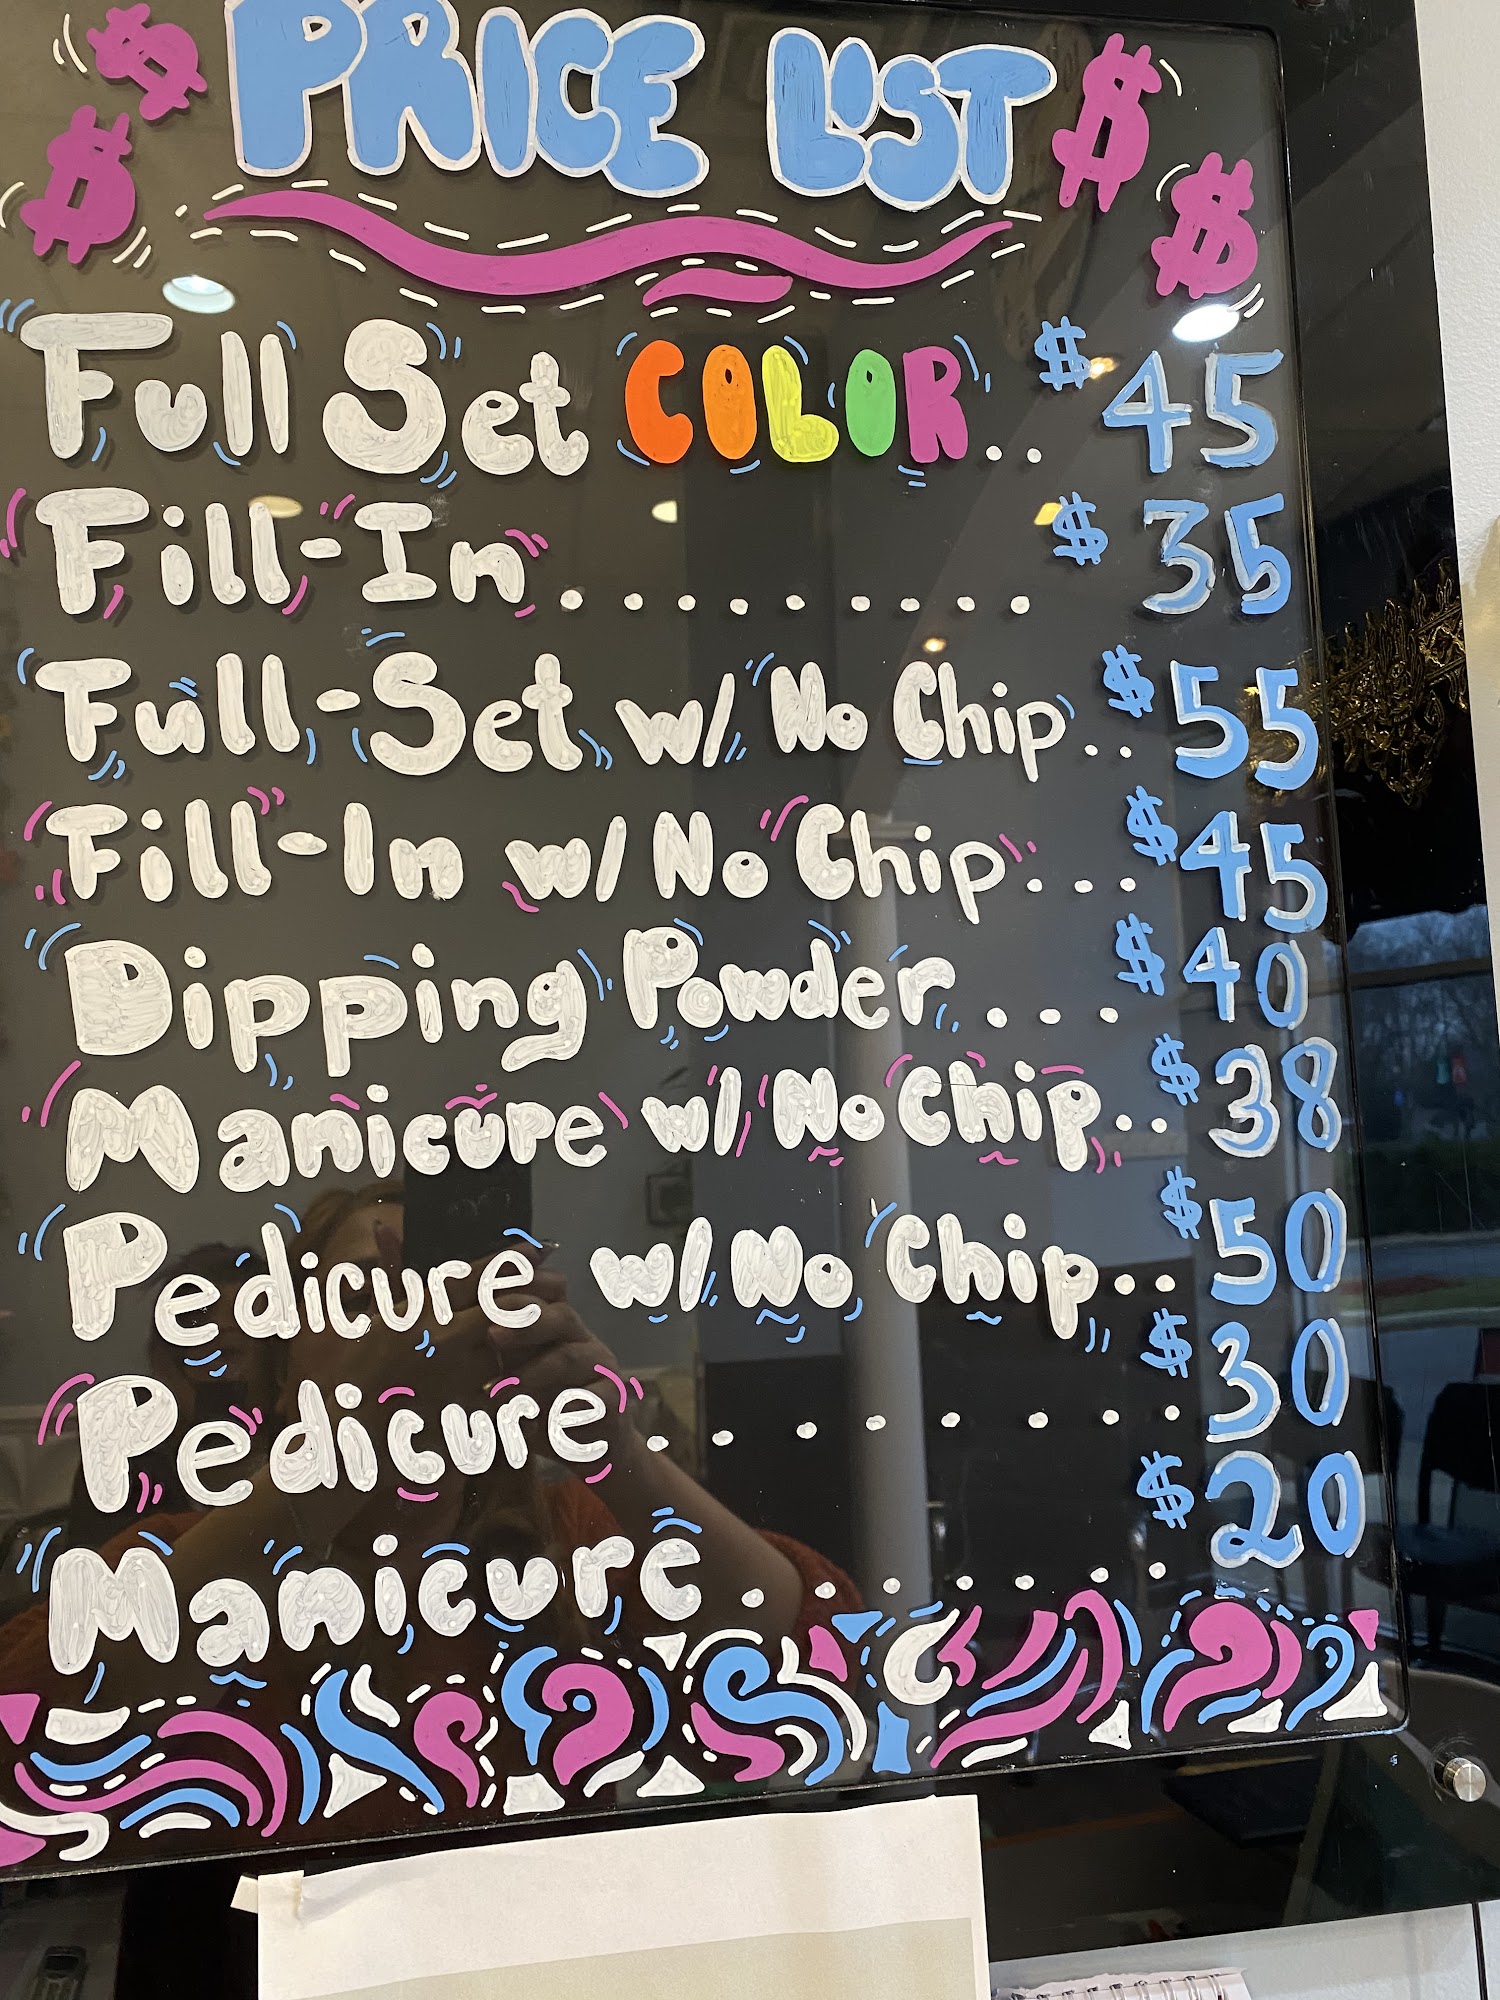 $ $ PRICE LIST $ $
Full Set COLOR.. $45
Fill-In......... $35
Full-Set w/ No Chip.. $55
Fill-In w/ No Chip... $45
Dipping Powder.... $40
Manicure w/ No Chip.. $38
Pedicure w/ No Chip.. $50
Pedicure........ $30
Manicure....... $20